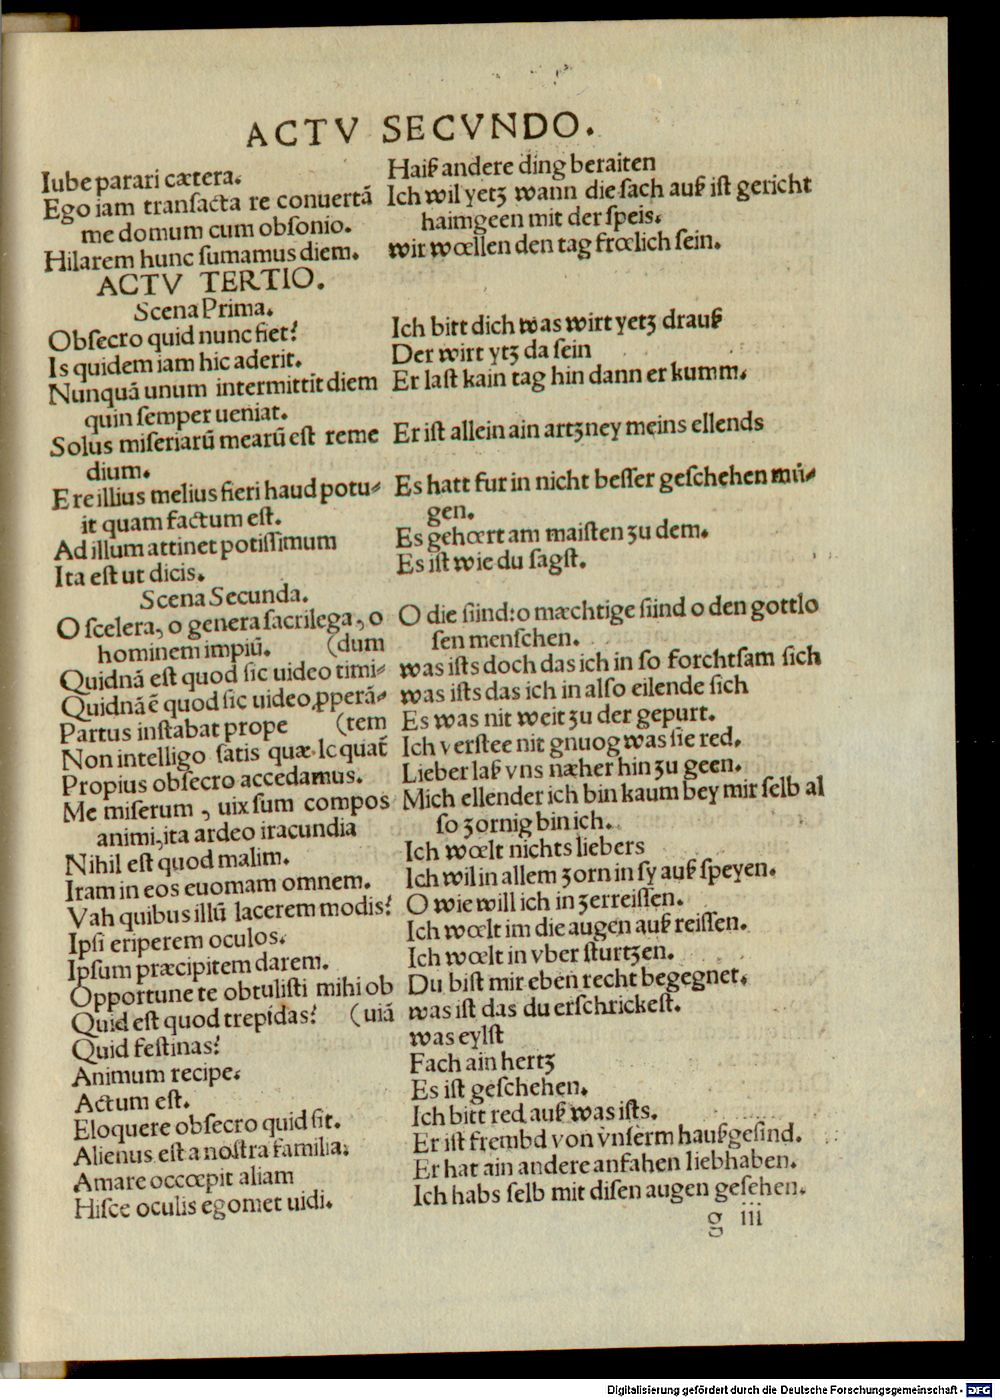 ACTV SECVNDO.
Iube parari cætera.
Ego iam transacta re conuertā
me domum cum obsonio.
Hilarem hunc sumamus diem.
ACTV TERTIO.
Scena Prima.
Obſecro quid nunc fiet?
Is quidem iam hic aderit.
Nunquā unum intermittit diem
quin ſemper ueniat.
Solus miſeriarū mearū eſt reme
dium.
E re illius melius fieri haud potu-
it quam factum eſt.
Ad illum attinet potiſſimum
Ita eſt ut dicis.
Scena Secunda.
O ſcelera, o genera ſacrilega, o
hominem impiū. (dum
Quidnā eſt quod ſic uideo timi-
Quidnā ē quod ſic uideo ꝓperā-
Partus inſtabat prope (tem
Non intelligo ſatis quæ lequat̄
Propius obſecro accedamus.
Me miſerum, uix ſum compos
animi, ita ardeo iracundia
Nihil eſt quod malim.
Iram in eos euomam omnem.
Vah quibus illū lacerem modis?
Ipſi eriperem oculos.
Ipſum præcipitem darem.
Opportune te obtuliſti mihi ob
Quid eſt quod trepidas? (uiā
Quid feſtinas?
Animum recipe.
Actum eſt.
Eloquere obſecro quid ſit.
Alienus eſt a noſtra familia.
Amare occœpit aliam
Hiſce oculis egomet uidi.
Haiß andere ding beraiten
Ich wil yetz wann die ſach auß iſt gericht
haimgeen mit der ſpeis.
wir wœllen den tag frœlich ſein.
Ich bitt dich was wirt yetz drauß
Der wirt ytz da ſein
Er laſt kain tag hin dann er kumm.
Er iſt allein ain artzney meins ellends
Es hatt fur in nicht beſſer geſchehen mü-
gen.
Es gehœrt am maiſten zu dem.
Es iſt wie du ſagſt.
O die ſünd: o mæchtige ſünd o den gottlo
ſen menſchen.
was iſts doch das ich in ſo forchtſam ſich
was iſts das ich in alſo eilende ſich
Es was nit weit zu der gepurt.
Ich verſtee nit gnuog was ſie red.
Lieber laß vns næher hin zu geen.
Mich ellender ich bin kaum bey mir ſelb al
ſo zornig bin ich.
Ich wœlt nichts liebers
Ich wil in allem zorn in ſy auß ſpeyen.
O wie will ich in zerreiſſen.
Ich wœlt im die augen auß reiſſen.
Ich wœlt in vber ſturtzen.
Du biſt mir eben recht begegnet.
was iſt das du erſchrickeſt.
was eylſt
Fach ain hertz
Es iſt geſchehen.
Ich bitt red auß was iſts.
Er iſt frembd von vnſerm haußgeſind.
Er hat ain andere anfahen liebhaben.
Ich habs ſelb mit diſen augen geſehen.
g iii
Digitalisierung gefördert durch die Deutsche Forschungsgemeinschaft - DFG